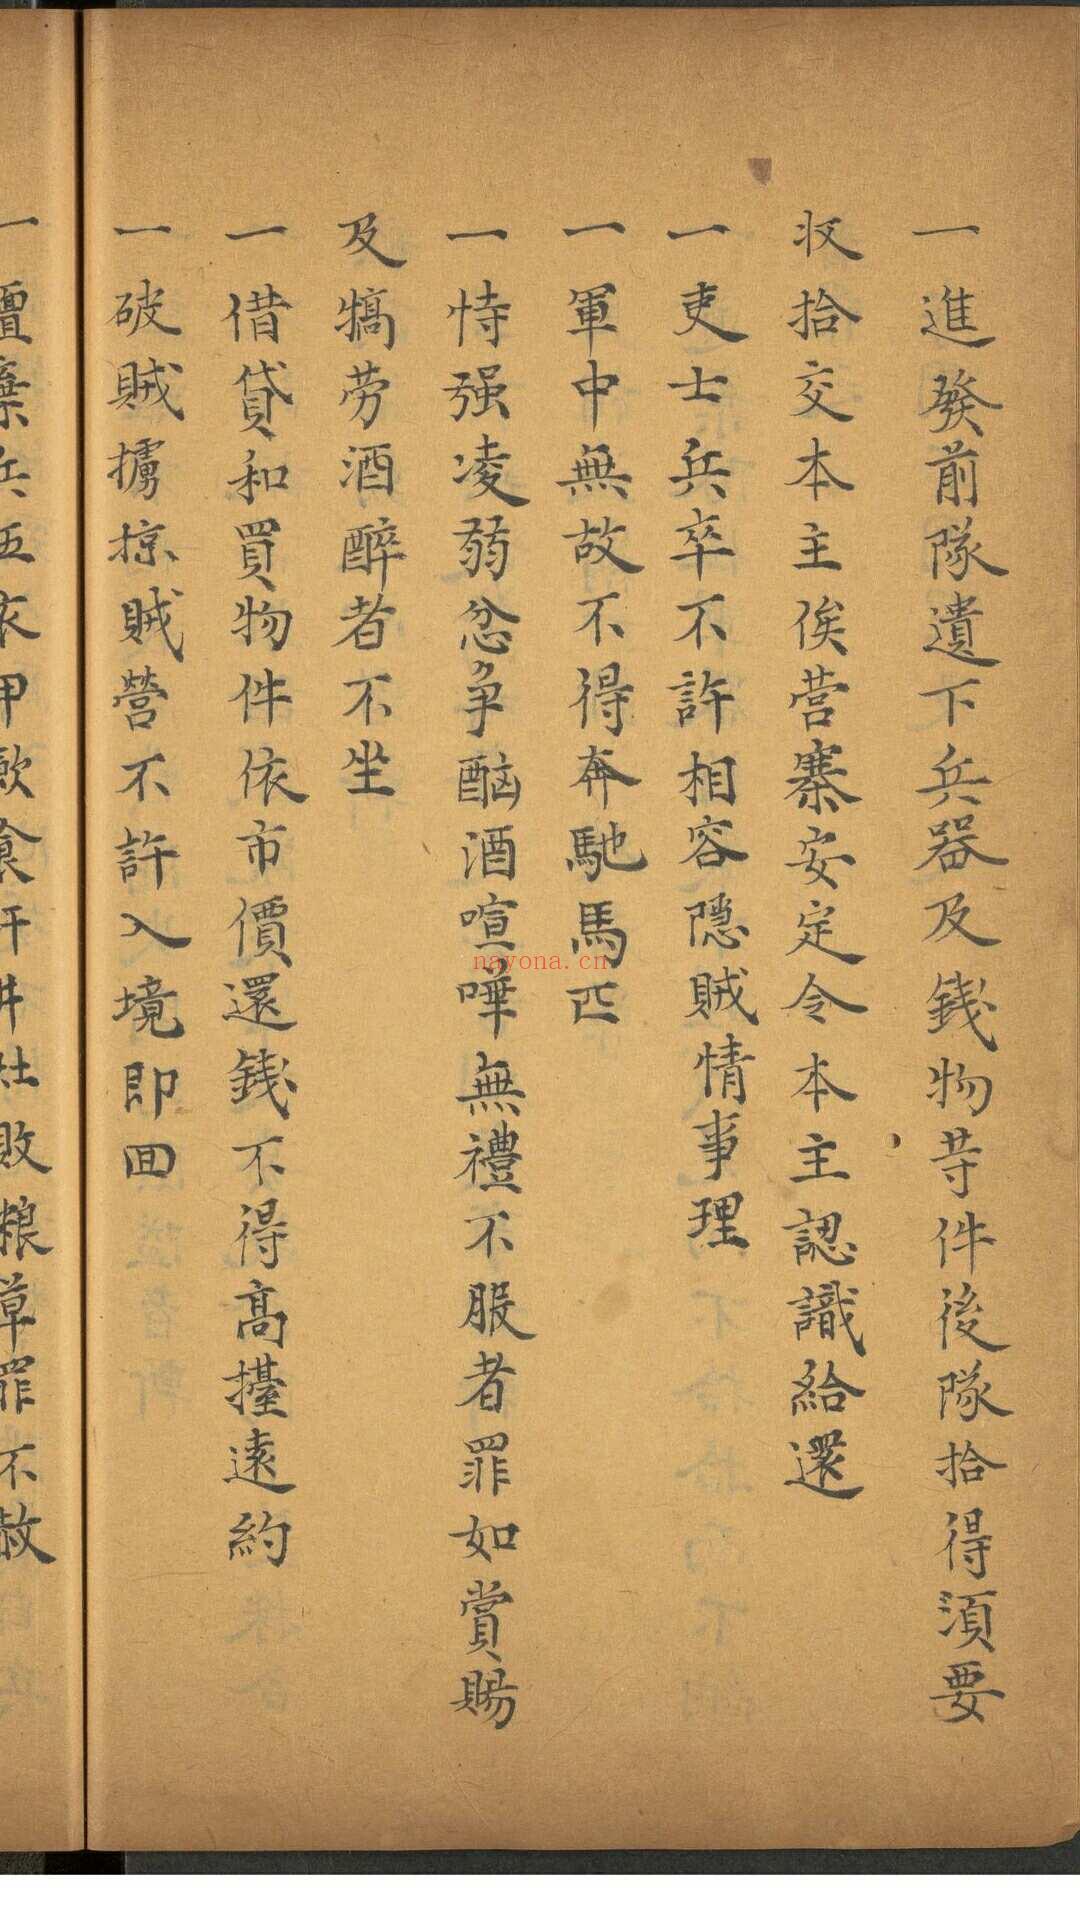 一進發前隊遺下兵器及錢物䓁件後隊拾得湏要
収拾交本主俟营寨安定令本主認識給還
一吏士兵卒不許相容隱賊情事理
一軍中無故不得奔馳馬匹
一恃强凌弱忿争酗酒喧嘩無禮不服者罪如賞賜
及犒劳酒醉者不坐
一借貸和買物件依市價還錢不得髙擡遠約
一破賊擄掠賊營不許入境即囬
一擅棄兵五衣甲飲食汗井杜敗粮草罪不赦
nayona.cn